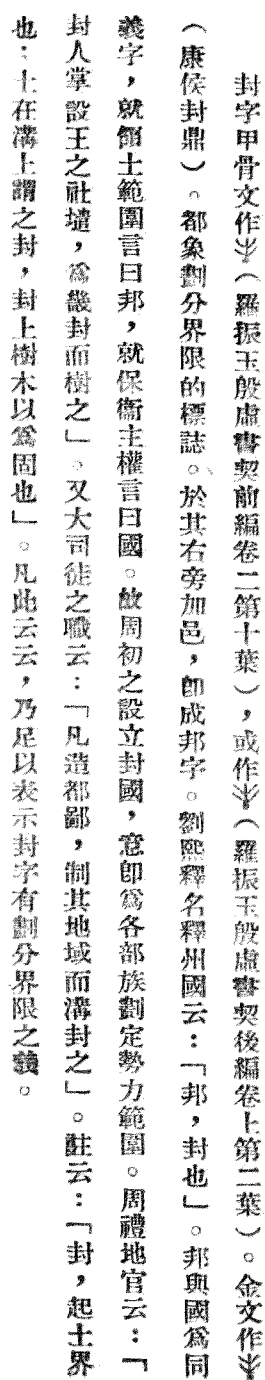 封字甲骨文作（羅振玉殷虛書契前編卷二第十葉），或作（羅振玉殷虛書契後編卷上第二葉）。金文作
（康侯封鼎）。都象劃分界限的標誌。於其右旁加邑，卽成邦字。劉熙釋名釋州國云：「邦，封也」。邦與國爲同
義字，就領土範圍言曰邦，就保衞主權言曰國。故周初之設立封國，意卽爲各部族劃定勢力範圍。周禮地官云：「
封人掌設王之社壝，爲畿封而樹之」。又大司徒之職云：「凡造都鄙，制其地域而溝封之」。註云：「封，起土界
也；土在溝上謂之封，封上樹木以爲固也」。凡此云云，乃足以表示封字有劃分界限之義。